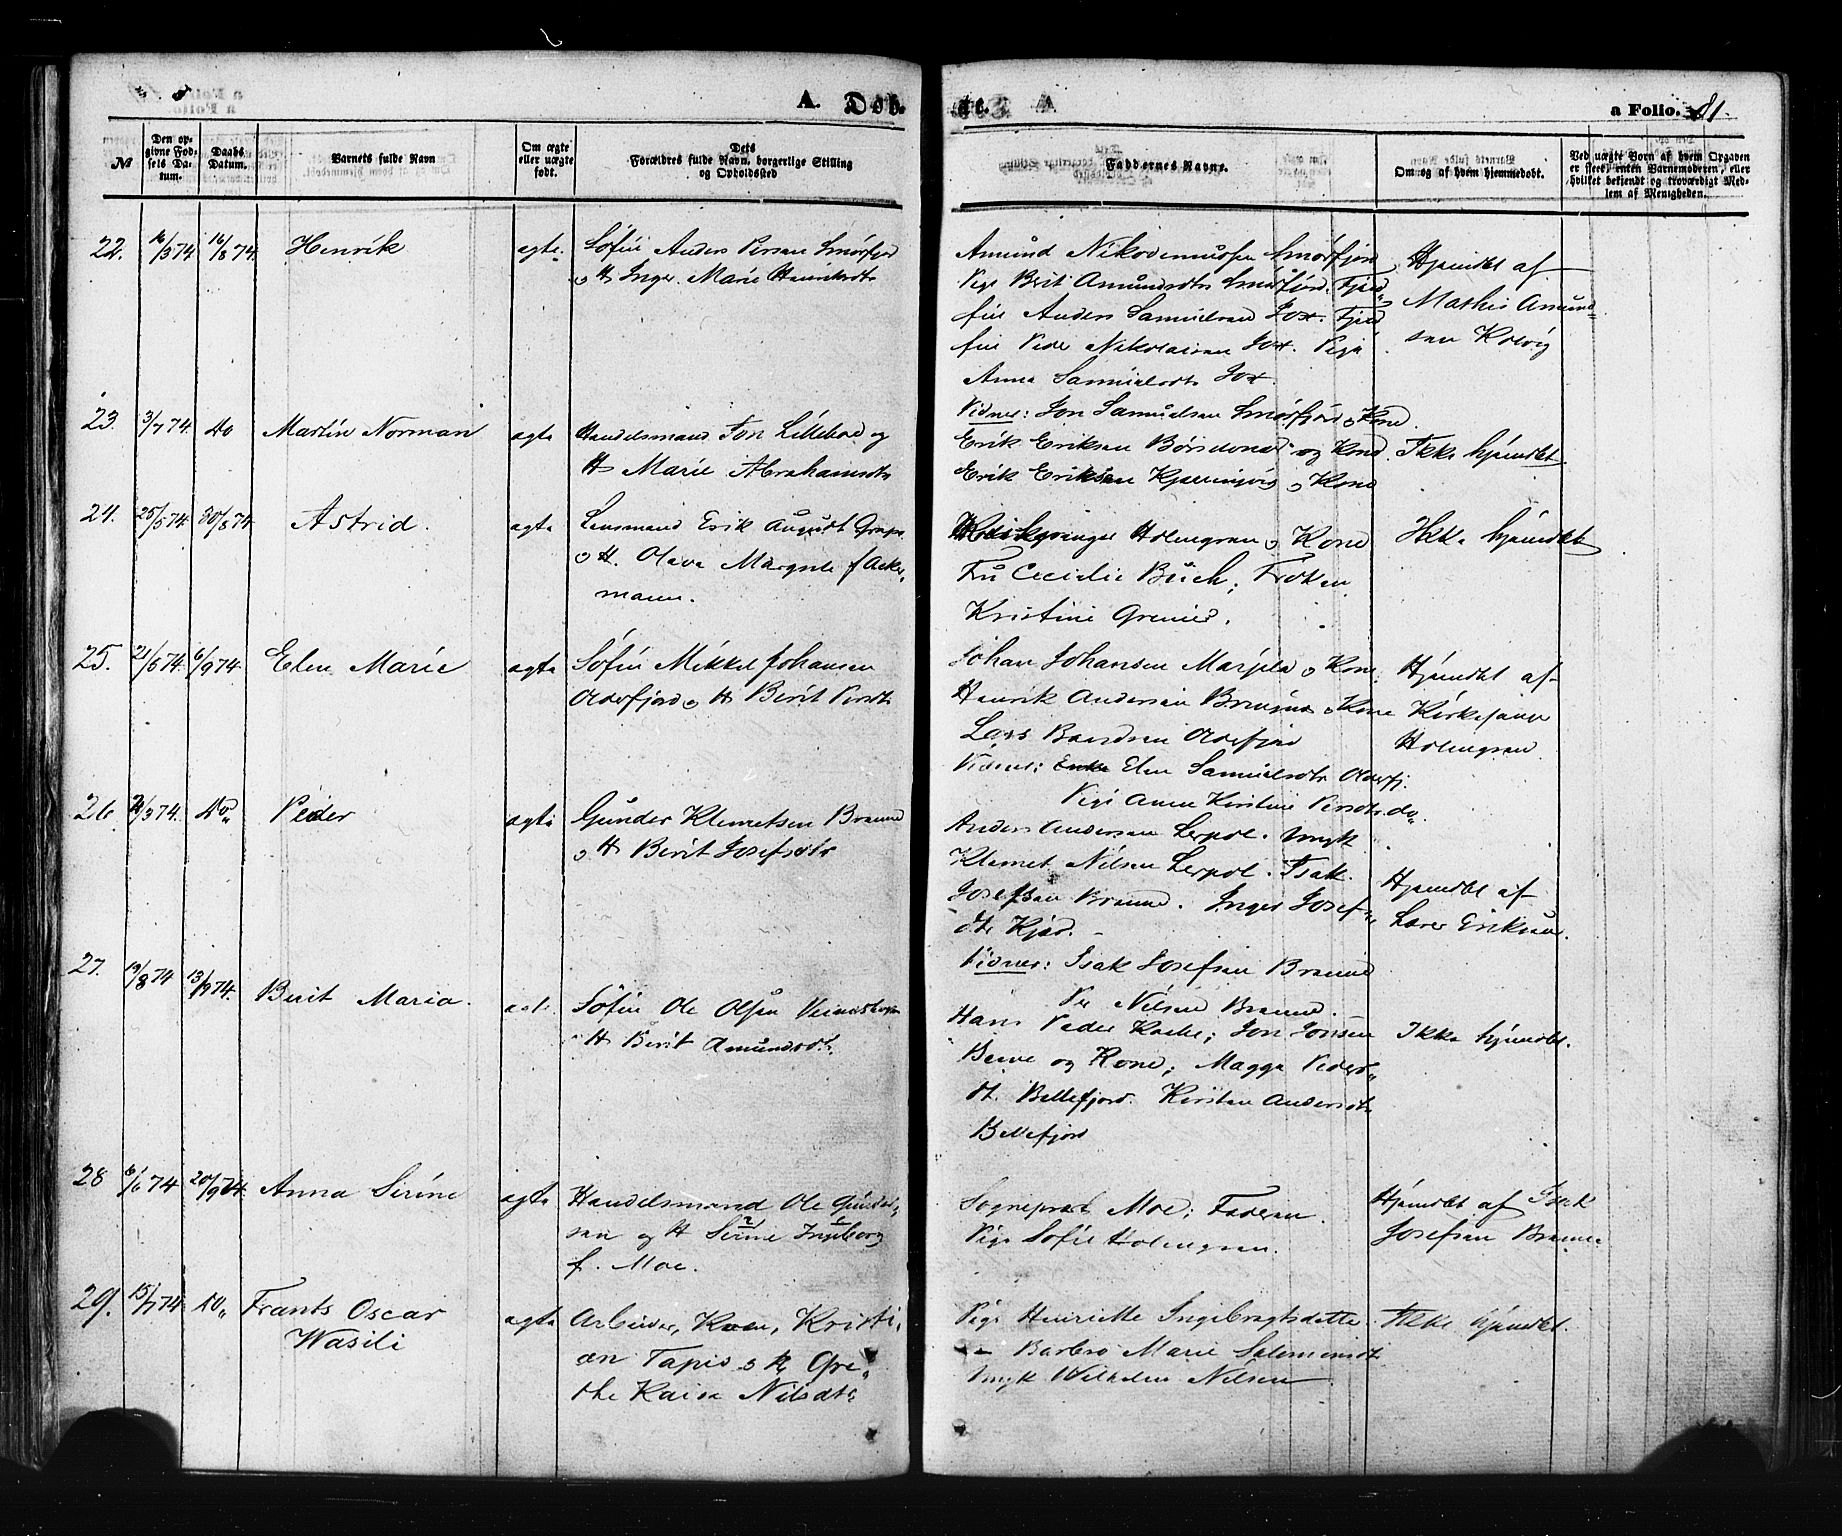 A. Døb-
te. A
a Folio. 81.
No
Den op-
givne Fød-
sels Da-
tum.
Daabs
Datum.
Barnets fulde Navn
Om ægte
eller uægte
født.
Dets
Forældres fulde Navn, borgerlige Stilling
og Opholdssted
Faddernes Navne.
Om og af hvem hjemmedøbt.
Ved uægte Børn af hvem Opgaven
er skeet, enten Barnemoderen, eller
hvilket bekjendt og troværdigt Med-
lem af Menigheden.
22. 16/3 74. 16/8 74. Henrik ægte. Søfin Anders Persen Smørfjord
og H Inger Marie Henriksdtr
Amund Nikodemussen Smørfjord
Pige Berit Amundsdtr Smørfjord. Fjeld
fin Anders Samuelsen Jox. Fjeld
fin Peder Nikolaisen Jox. Pige
Anna Samuelsdtr Jox.
Vidner: Jon Samuelsen Smørfjord og Kone
Hjemdbt af
Mathis Amund-
sen Kolvig
23. 3/7 74. do Martin Norman ægte Handelsmand Jon Lilleboe og
H Marie Abrahamsdtr
Erik Eriksen Børselvnes og Kone
Erik Eriksen Kjæringvig og Kone
Ikke hjemdbt
24. 25/5 74. 30/8 74. Astrid. ægte Lensmand Erik August
og H. Olava Margrete f Acker-
mann.
Kirkesanger Holmgren og Kone
Fru Cecilie Buch; Frøken
Kristine Greiner.
Ikke hjemdbt
25. 21/6 74. 6/9 74. Elen Marie ægte Søfin Mikkel Johansen
Olderfjord og H Berit Persdtr
Johan Johansen Marjela og Kone;
Henrik Andersen Brenna og Kone
Lars Olderfjord
Vidner: Enke Elen Samuelsdtr Olderfj.
Pige Anne Kirstine Persdtr do.
Hjemdbt af
Kirkesanger
Holmgren
26. 21/3 74. do. Peder ægte Gunder Klemetsen Brenna
og H Berit Josefsdtr
Anders Andersen Lerpol. Ungk
Klemet Nilsen Lerpol. Isak
Josefsen Brenna. Inger Josef-
dtr Kjær.
Vidner: Isak Josefsen Brenna
Per Nilsen Brenna.
Hjemdbt af
Lars Eriksen.
27. 19/8 74 13/9 74. Berit Maria. ægte Søfin Ole Olsen
H Berit Amundsdtr.
Hans Peder Kaabe; Jon Jonsen
og Kone; Magga Peders-
dt. Billefjord. Kirsten Andersdtr
Billefjord
Ikke hjemdbt.
28 8/6 74 20/9 74. Anna Serine ægte Handelsmand Ole Gunder-
sen og H Serine Ingeborg
f. Moe.
Sogneprest Moe; Faderen.
Pige Sofie Holmgren.
Hjemdbt af Isak
Josefsen Brenna
29. 15/7 74 do. Frants Oscar
Wasili
ægte Arbeider, Kvæn, Kristi-
an Tapio og H Gre-
the Kaisa Nilsdtr
Pige Henriette Ingebrigtsdatter.
— Barbro Marie Salomonsdtr
Ungk Wilhelm Nilsen
Ikke hjemdbt.